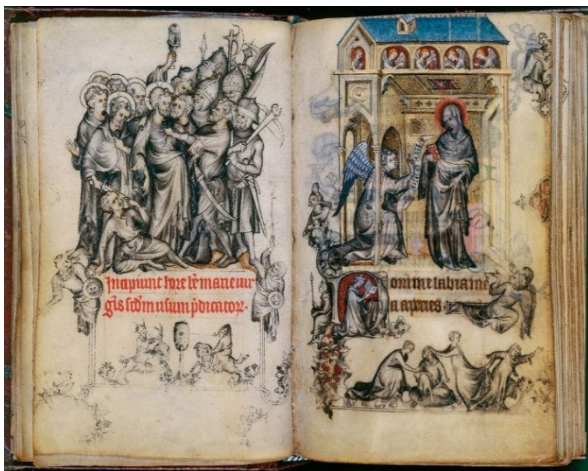 Incipiunt hore bē marie uir
gīs scd̄m usum p̄dicator.
Domine labia me
a aperies.